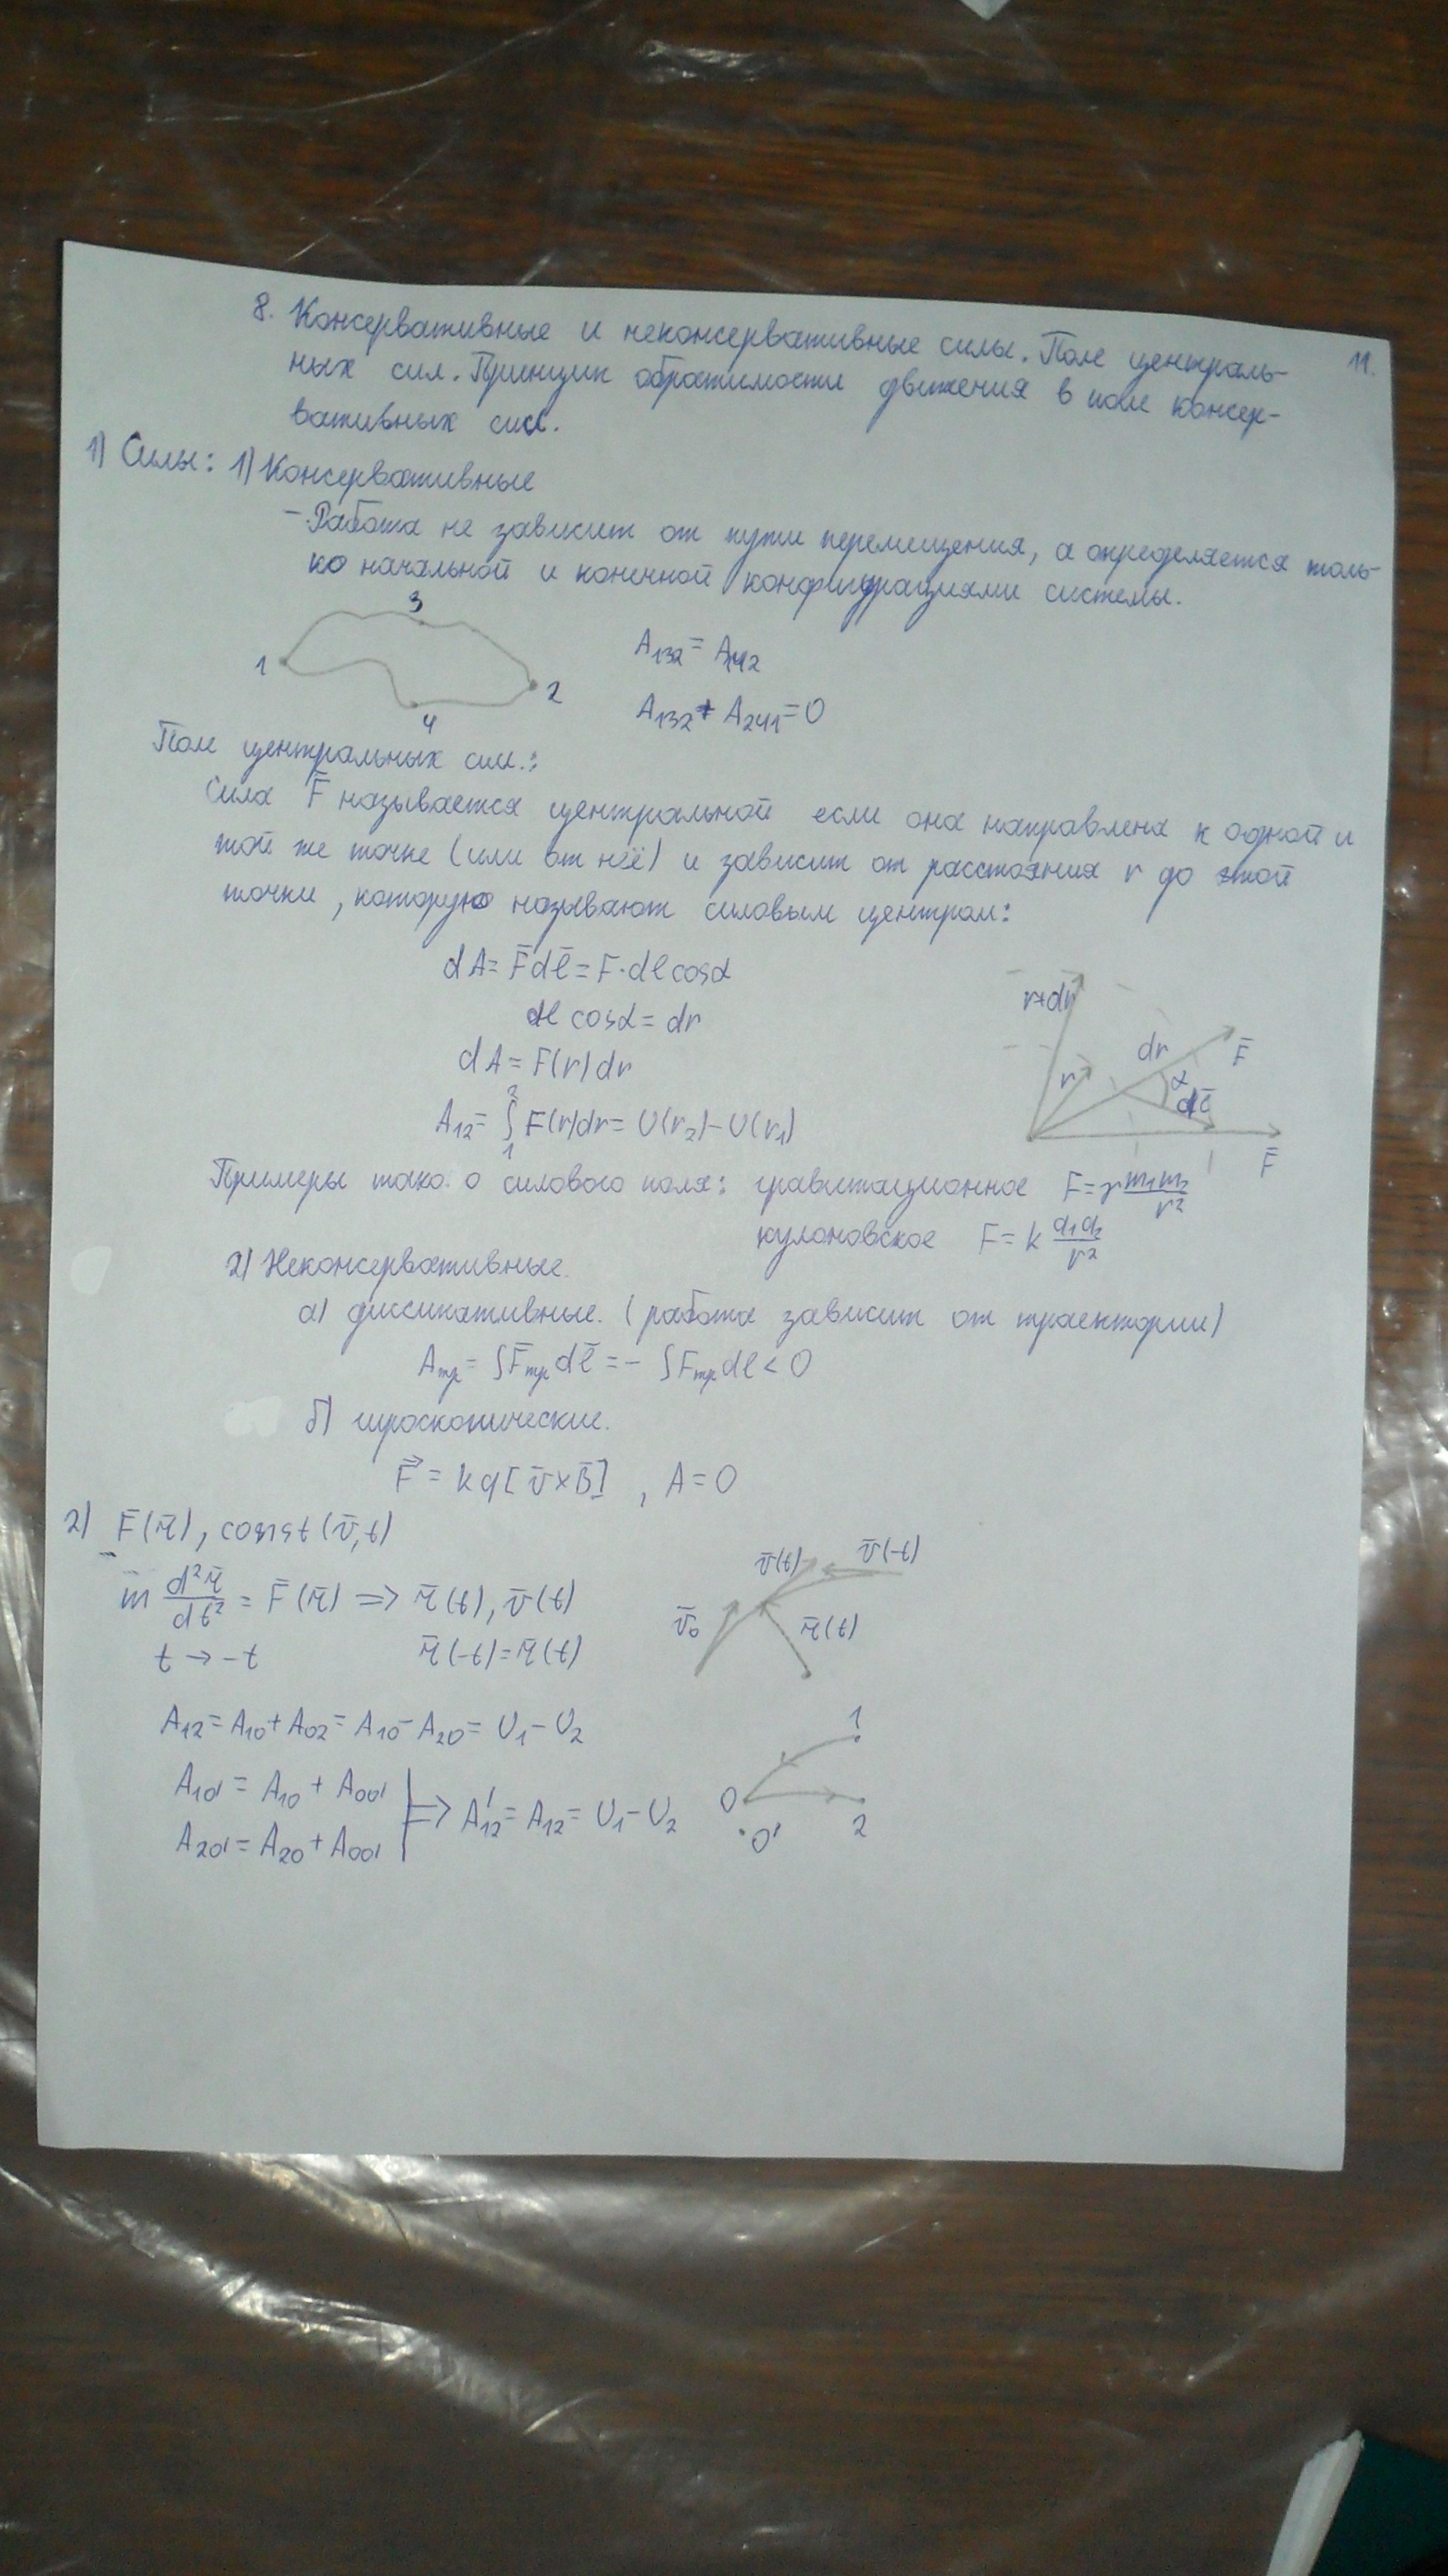 8. Консервативные и неконсервативные силы. Поле централь-
11.
ных сил. Принцип обратимости движения в поле консер-
вативных сил.
1) Силы: 1) Консервативные
- Работа не зависит от пути перемещения, а определяется толь-
ко начальной и конечной конфигурациями системы.
3
1
2
4
A₁₃₂ = A₁₄₂
A₁₃₂ + A₂₄₁ = 0
Поле центральных сил.:
Сила F̄ называется центральной если она направлена к одной и
той же точке (или от неё) и зависит от расстояния r до этой
точки, которую называют силовым центром:
dA = F̄dl̄ = F·dl cosα
dl cosα = dr
dA = F(r)dr
A₁₂ = ∫₁² F(r)dr = U(r₂) - U(r₁)
r+dr
r
dr
F̄
α
dl̄
F̄
Примеры тако о силового поля: гравитационное F = γ m₁m₂/r²
кулоновское F = k q₁q₂/r²
2) Неконсервативные.
а) диссипативные. (работа зависит от траектории)
Aтр = ∫F̄тр dl̄ = - ∫Fтр dl < 0
б) гироскопические.
F⃗ = kq[v̄×B̄], A = 0
2) F̄(r̄), const(v̄,t)
m d²r̄/dt² = F̄(r̄) => r̄(t), v̄(t)
t → -t r̄(-t) = r̄(t)
v̄(t) v̄(-t)
v̄₀ r̄(t)
A₁₂ = A₁₀ + A₀₂ = A₁₀ - A₂₀ = U₁ - U₂
A₁₀' = A₁₀ + A₀₀'
A₂₀' = A₂₀ + A₀₀'
=> A'₁₂ = A₁₂ = U₁ - U₂
1
0
2
0'